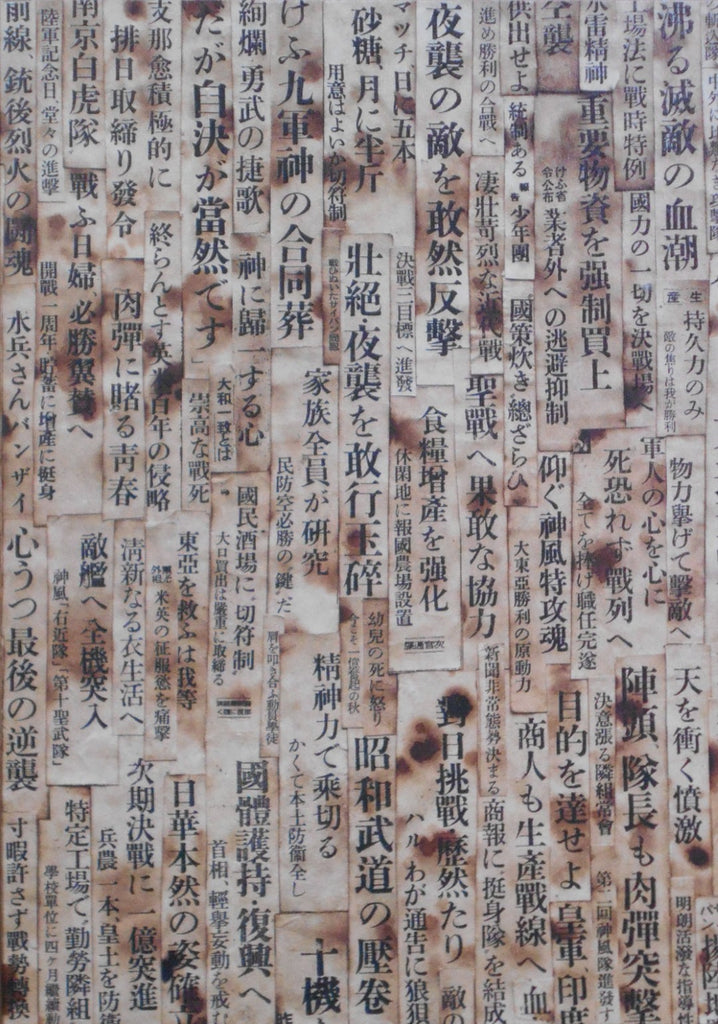 沸る滅敵の血潮
工場法に戰時特例
國力の一切を決戰場へ
生産
持久力のみ
敵の焦りは我が勝利
重要物資を强制買上
空襲
けふ省令公布
業者外への逃避抑制
供出せよ
統制ある
少年團
國策炊き總ざらひ
進め勝利の合戰へ
凄壯苛烈な近代戰
聖戰へ果敢な協力
夜襲の敵を敢然反擊
マッチ、日に五本
決戰三目標へ進發
食糧增產を强化
休閑地に報國農場設置
砂糖、月に半斤
用意はよいか切符制
壯絕・夜襲を敢行玉碎
けふ九軍神の合同葬
家族全員が研究
民防空必勝の"鍵"だ
絢爛、勇武の捷歌
神に歸一する心
大和一致とは
國民酒場に切符制
大口買出は嚴重に取締る
だが自決が當然です」
崇高な戰死
支那愈積極的に
終らんとす英米百年の侵略
東亞を救ふは我等
米英の征服慾を痛擊
排日取締り發令
肉彈に賭る靑春
淸新なる衣生活へ
南京白虎隊
戰ふ日婦 必勝翼贊へ
敵艦へ全機突入
神風『右近隊』『第十聖武隊』
陸軍記念日、堂々の進擊
開戰一周年、貯蓄に增產に挺身
前線、銃後烈火の鬪魂
水兵さんバンザイ
心うつ最後の逆襲
物力擧げて擊敵へ
軍人の心を心に
死恐れず戰列へ
全てを捧げ職任完遂
仰ぐ神風特攻魂
大東亞勝利の原動力
幼兒の死に怒り
肩を叩き合ふ動員學徒
精神力で乘切る
かくて本土防衞全し
天を衝く憤激
陣頭、隊長も肉彈突擊
決意漲る隣組常會
第二回神風隊進發す
明朗活潑な指導性
目的を達せよ
皇軍、印度
商人も生產戰線へ
新聞非常態勢決まる
商報に挺身隊を結成
對日挑戰・歷然たり
ハル、わが通告に狼狽
昭和武道の壓卷
國體護持・復興へ
首相、輕擧妄動を戒む
十機
日華本然の姿確立
次期決戰に一億突進
兵農一本、皇土を防衞
特定工場で勤勞隣組
學校單位に四ケ月繼續勤
寸暇許さず戰勢轉換